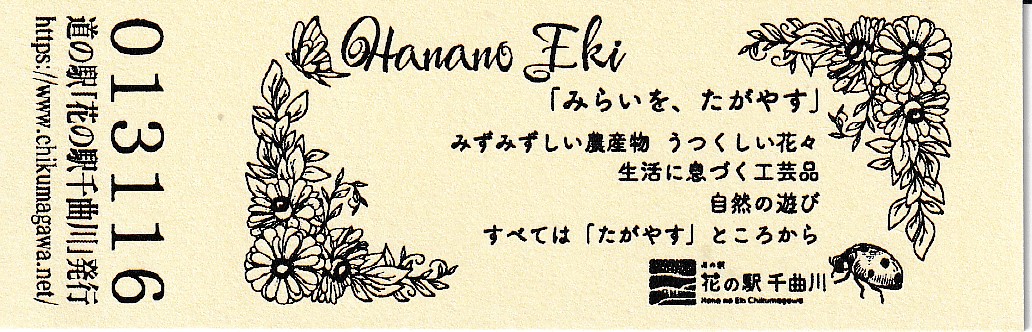 013116
道の駅「花の駅千曲川」発行
https://www.chikumagawa.net/
Hanano Eki
「みらいを、たがやす」
みずみずしい農産物　うつくしい花々
生活に息づく工芸品
自然の遊び
すべては「たがやす」ところから
道の駅
花の駅 千曲川
Hana no Eki Chikumagawa